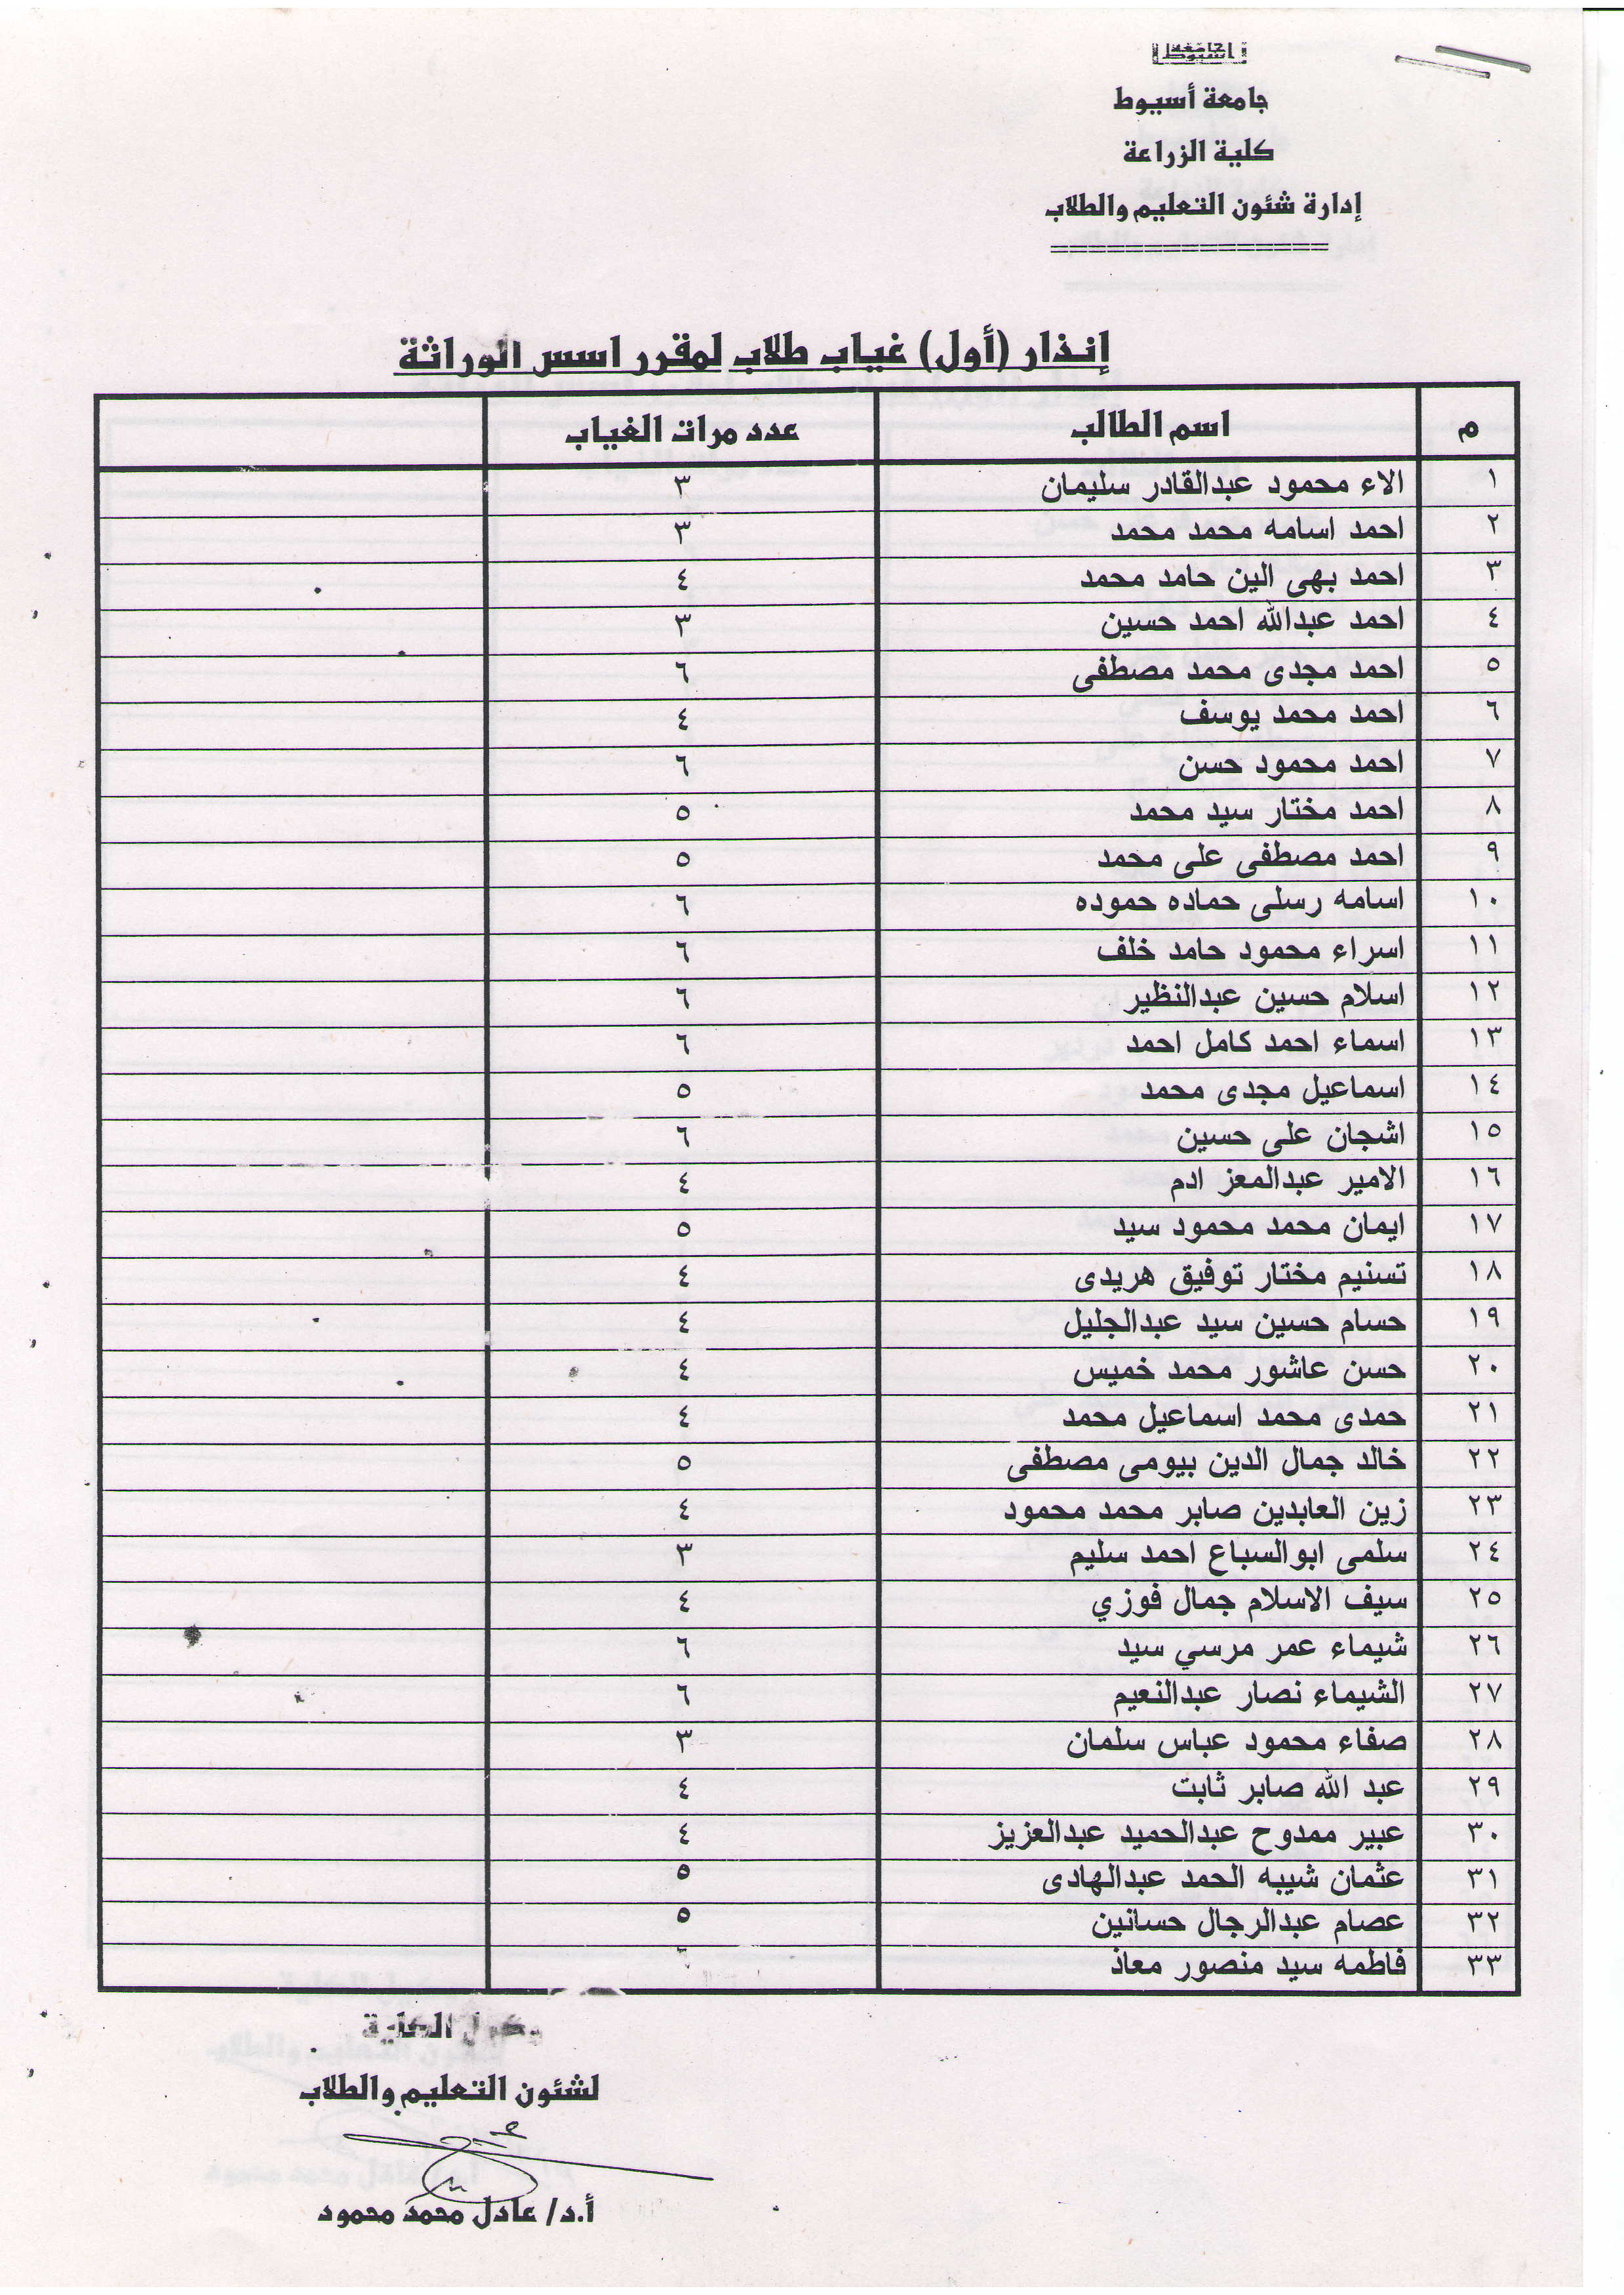 جامعة
اسيوط
جامعة أسيوط
كلية الزراعة
إدارة شئون التعليم والطلاب
================
إنذار (أول) غياب طلاب لمقرر اسس الوراثة
م اسم الطالب عدد مرات الغياب
١ الاء محمود عبدالقادر سليمان ٣
٢ احمد اسامه محمد محمد ٣
٣ احمد بهى الين حامد محمد ٤
٤ احمد عبدالله احمد حسين ٣
٥ احمد مجدى محمد مصطفى ٦
٦ احمد محمد يوسف ٤
٧ احمد محمود حسن ٦
٨ احمد مختار سيد محمد ٥
٩ احمد مصطفى على محمد ٥
١٠ اسامه رسلى حماده حموده ٦
١١ اسراء محمود حامد خلف ٦
١٢ اسلام حسين عبدالنظير ٦
١٣ اسماء احمد كامل احمد ٦
١٤ اسماعيل مجدى محمد ٥
١٥ اشجان على حسين ٦
١٦ الامير عبدالمعز ادم ٤
١٧ ايمان محمد محمود سيد ٥
١٨ تسنيم مختار توفيق هريدى ٤
١٩ حسام حسين سيد عبدالجليل ٤
٢٠ حسن عاشور محمد خميس ٤
٢١ حمدى محمد اسماعيل محمد ٤
٢٢ خالد جمال الدين بيومى مصطفى ٥
٢٣ زين العابدين صابر محمد محمود ٤
٢٤ سلمى ابوالسباع احمد سليم ٣
٢٥ سيف الاسلام جمال فوزي ٤
٢٦ شيماء عمر مرسي سيد ٦
٢٧ الشيماء نصار عبدالنعيم ٦
٢٨ صفاء محمود عباس سلمان ٣
٢٩ عبد الله صابر ثابت ٤
٣٠ عبير ممدوح عبدالحميد عبدالعزيز ٤
٣١ عثمان شيبه الحمد عبدالهادى ٥
٣٢ عصام عبدالرجال حسانين ٥
٣٣ فاطمه سيد منصور معاذ
وكيل الكلية
لشئون التعليم والطلاب
أ.د/ عادل محمد محمود